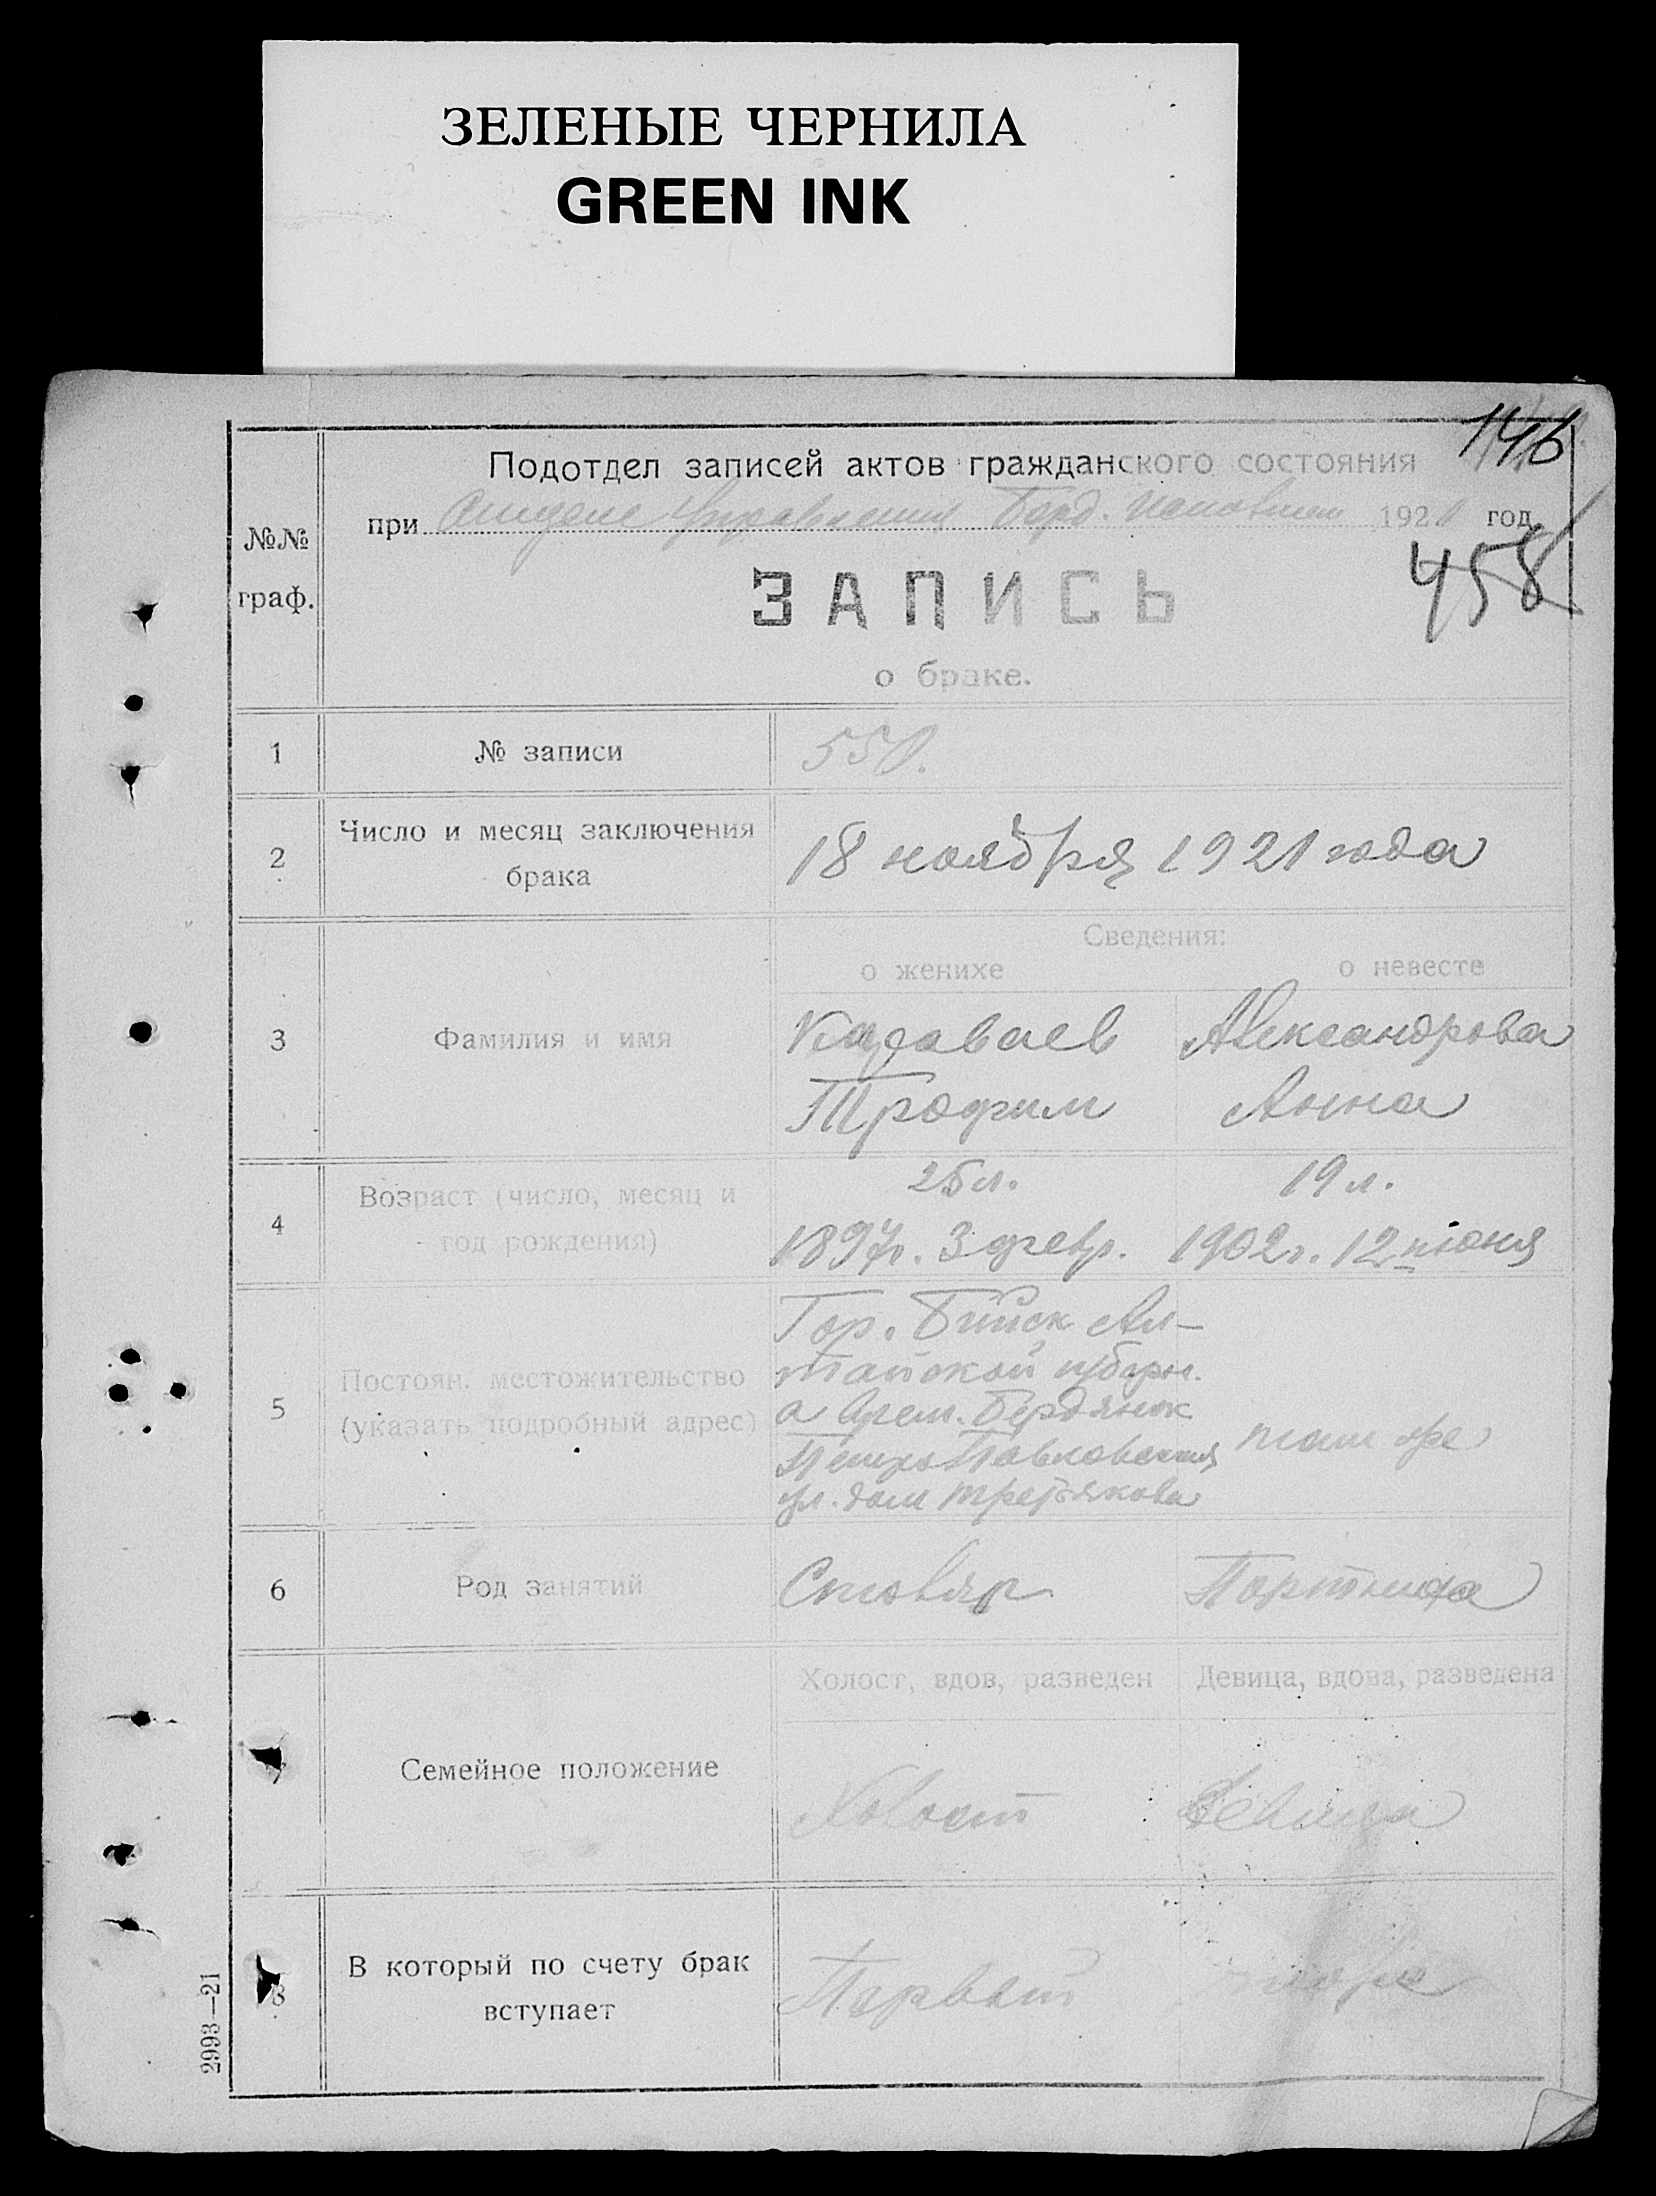 ЗЕЛЕНЫЕ ЧЕРНИЛА
GREEN INK
146
Подотдел записей актов гражданского состояния
при Отделе Управления Берд. 1921 год
458
№№
граф.
ЗАПИСЬ
о браке.
1 № записи 550.
2 Число и месяц заключения
брака
18 ноября 1921 года
Сведения:
о женихе о невесте
3 Фамилия и имя
Караваев Александрова
Трофим Анна
4 Возраст (число, месяц и
год рождения)
25 л. 19 л.
1897г. 3 февр. 1902 г. 12 июня
5 Постоян. местожительство
(указать подробный адрес)
Гор. Бийск Ал-
тайской губерн.
а врем. Бердянск
Петро Павловская
ул. дом Третьякова
там же
6 Род занятий Столяр Портниха
Холост, вдов, разведен Девица, вдова, разведена
7 Семейное положение Холост Девица
8 В который по счету брак
вступает
Первый тоже
2993—21